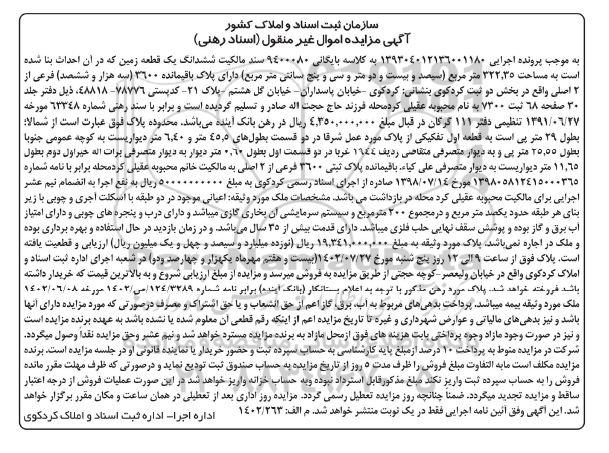 سازمان ثبت اسناد و املاک کشور
آگهی مزایده اموال غیر منقول (اسناد رهنی)
به موجب پرونده اجرایی ۱۳۹۳۰۴۰۱۲۱۳۶۰۰۱۱۸۰ به کلاسه بایگانی ۹۴۰۰۰۸۰ سند مالکیت ششدانگ یک قطعه زمین که در آن احداث بنا شده
است به مساحت ۳۲۲,۳۵ متر مربع (سیصد و بیست و دو متر و سی و پنج سانتی متر مربع) دارای پلاک باقیمانده ۳۶۰۰ (سه هزار و ششصد) فرعی از
۲ اصلی واقع در بخش دو ثبت کردکوی بنشانی: کردکوی -خیابان پاسداران- خیابان گل هشتم -پلاک ۲۱- کدپستی ۷۸۷۷۶-۴۸۸۱۸، ذیل دفتر جلد
۳۰ صفحه ۶۸ ثبت ۷۳۰۰ به نام محبوبه عقیلی کردمحله فرزند حاج حجت اله صادر و تسلیم گردیده است و برابر با سند رهنی شماره ۶۳۳۴۸ مورخه
۱۳۹۱/۰۶/۲۷ تنظیمی دفتر ۱۱۱ گرگان در قبال مبلغ ۴,۳۵۰,۰۰۰,۰۰۰ ریال در رهن بانک آینده می‌باشد. محدوده پلاک فوق عبارت است از شمالا؛
بطول ۲۹ متر پی است به قطعه اول تفکیکی از پلاک مورد عمل شرقا در دو قسمت بطول‌های ۴۵,۰ متر و ۶,۴۰ متر دیواریست به کوچه عمومی جنوبا
بطول ۲۵,۵۵ متر پی و به دیوار متصرفی متقاضی ردیف ۱۹۴۴ غربا در دو قسمت اول بطول ۰,۶۰ متر دیوار به دیوار متصرفی برات اله خیراول دوم بطول
۱۱,۶۵ متر دیواریست به دیوار متصرفی علی کیاء. باقیمانده پلاک ثبتی ۳۶۰۰ فرعی از ۲ اصلی به مالکیت خانم محبوبه عقیلی کردمحله برابر با نامه شماره
۱۳۹۸۰۵۸۱۲۴۱۵۰۰۰۳۶۵ مورخ ۱۳۹۸/۰۷/۱۴ صادره از اجرای اسناد رسمی کردکوی به مبلغ ۵۰۰۰۰۰۰۰۰۰ ریال به نفع اجرا به انضمام نیم عشر
اجرایی برای مالکیت محبوبه عقیلی کرد محله در بازداشت می باشد. مشخصات ملک مورد وثیقه: اعیانی موجود در دو طبقه با اسکلت آجری و چوبی با زیر
بنای هر طبقه حدود یکصد متر مربع و درمجموع ۲۰۰ مترمربع و سیستم سرمایشی آن بخاری گازی میباشد و دارای درب و پنجره های چوبی و دارای امتیاز
آب برق و گاز بوده و پوشش سقف نهایی حلب فلزی میباشد. دارای قدمت بیش از ۳۰ سال می‌باشد. و در زمان بازدید در حال استفاده و بهره برداری بوده
و ملک در اجاره نمی‌باشد. پلاک مورد وثیقه به مبلغ ۱۹,۳۴۱,۰۰۰,۰۰۰ ریال (نوزده میلیارد و سیصد و چهل و یک میلیون ریال) ارزیابی و قطعیت یافته
است. پلاک فوق از ساعت ۹ الی ۱۲ روز پنج شنبه مورخ ۱۴۰۲/۰۷/۲۷(بیست و هفتم مهرماه یکهزارو چهارصد ودو) در شعبه اجرای اداره ثبت اسناد و
املاک کردکوی واقع در خیابان ولیعصر-کوچه حجتی از طریق مزایده به فروش میرسد و مزایده از مبلغ ارزیابی شروع و به بالاترین قیمت که خریدار داشته
باشد فروخته خواهد شد. پلاک مورد رهن مذکور با توجه به اعلام بستانکار (بانک آینده) برابر نامه شماره ۱۲۴/۳۲۸۹/ص/۱۴۰۲ مورخه ۱۴۰۲/۰۶/۰۸
ملک مورد وثیقه بیمه میباشد. پرداخت بدهی‌های مربوط به آب، برق، گاز اعم از حق انشعاب و یا حق اشتراک و مصرف درصورتی که مورد مزایده دارای آنها
باشد و نیز بدهی‌های مالیاتی و عوارض شهرداری و غیره تا تاریخ مزایده اعم از اینکه رقم قطعی آن معلوم شده یا نشده باشد به عهده برنده مزایده است
و نیز در صورت وجود مازاد وجوه پرداختی بابت هزینه های فوق ازمحل مازاد به برنده مزایده مسترد خواهد شد و نیم عشر وحق مزایده نقداً وصول میگردد.
شرکت در مزایده منوط به پرداخت ۱۰ درصد ازمبلغ پایه کارشناسی به حساب سپرده ثبت و حضور خریدار یا نماینده قانونی او در جلسه مزایده است. برنده
مزایده مکلف است مابه التفاوت مبلغ فروش را ظرف مدت ۵ روز از تاریخ مزایده به حساب صندوق ثبت تودیع نماید و درصورتی که ظرف مهلت مقرر مانده
فروش را به حساب سپرده ثبت واریز نکند مبلغ مذکورقابل استرداد نبوده وبه حساب خزانه واریز خواهد شد. در این صورت عملیات فروش از درجه اعتبار
ساقط و مزایده تجدید میگردد. ضمناً چنانچه روز مزایده تعطیل رسمی گردد. مزایده روز اداری بعد از تعطیلی در همان ساعت و مکان مقرر برگزار خواهد
شد. این آگهی وفق آئین نامه اجرایی فقط در یک نوبت منتشر خواهد شد. م الف: ۱۴۰۲/۲۶۳
اداره اجرا- اداره ثبت اسناد و املاک کردکوی